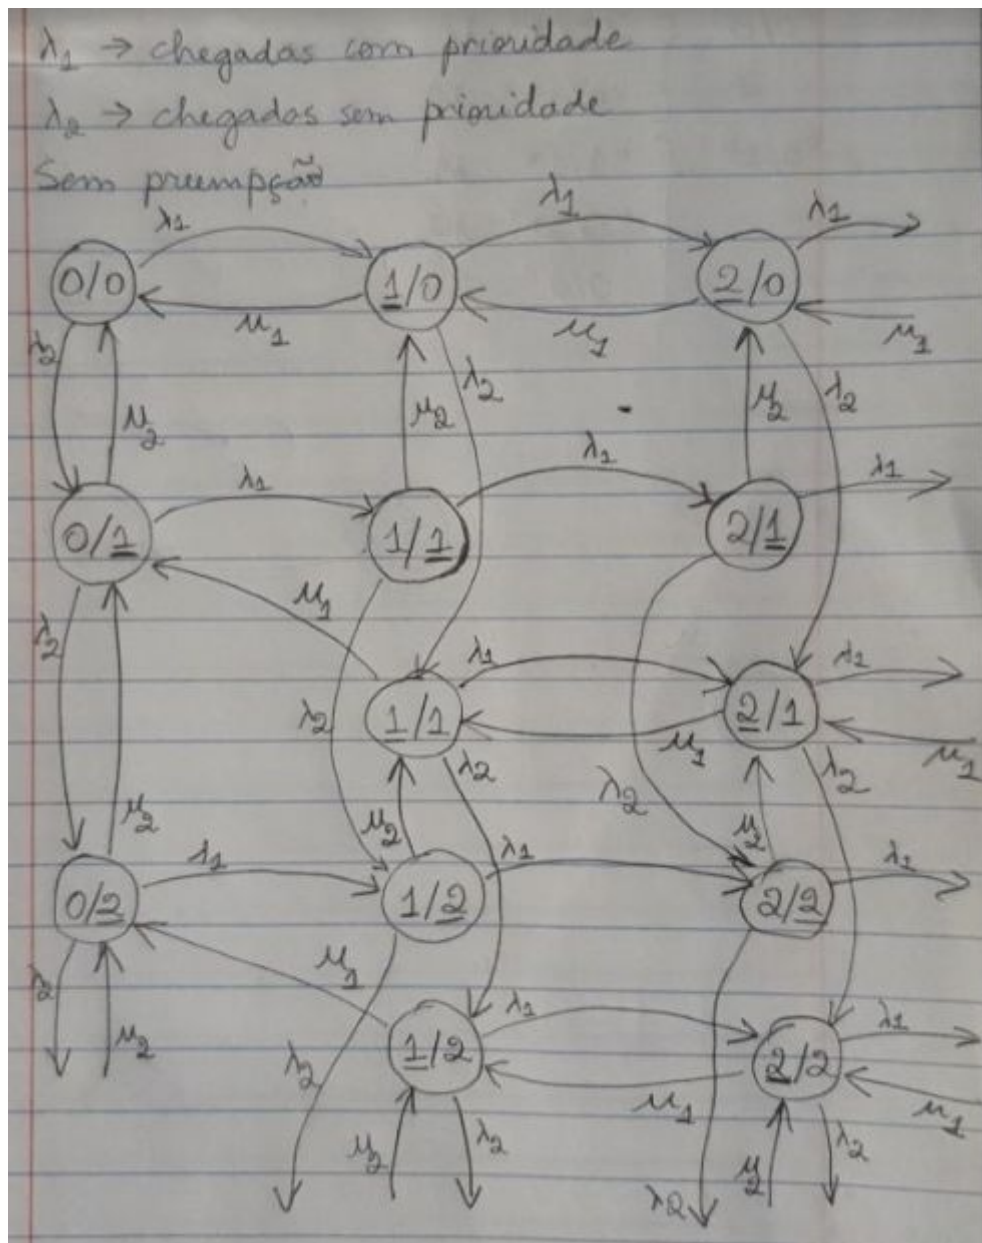 λ1 → chegadas com prioridade
λ2 → chegadas sem prioridade
Sem preempção
λ1 λ1 λ1
0/0 1/0 2/0
μ1 μ1 μ1
λ2 μ2 μ2 λ2 μ2 λ2
λ1 λ1 λ1
0/1 1/1 2/1
μ1
λ2 λ1 λ1
λ2 1/1 2/1
μ1 μ1
λ2 λ2 λ2
μ2 μ2 μ2
λ1 λ1 λ1
0/2 1/2 2/2
μ1
λ2 λ1 λ1
μ2 1/2 2/2
λ2 μ1 μ1
μ2 λ2 μ2 λ2
λ2